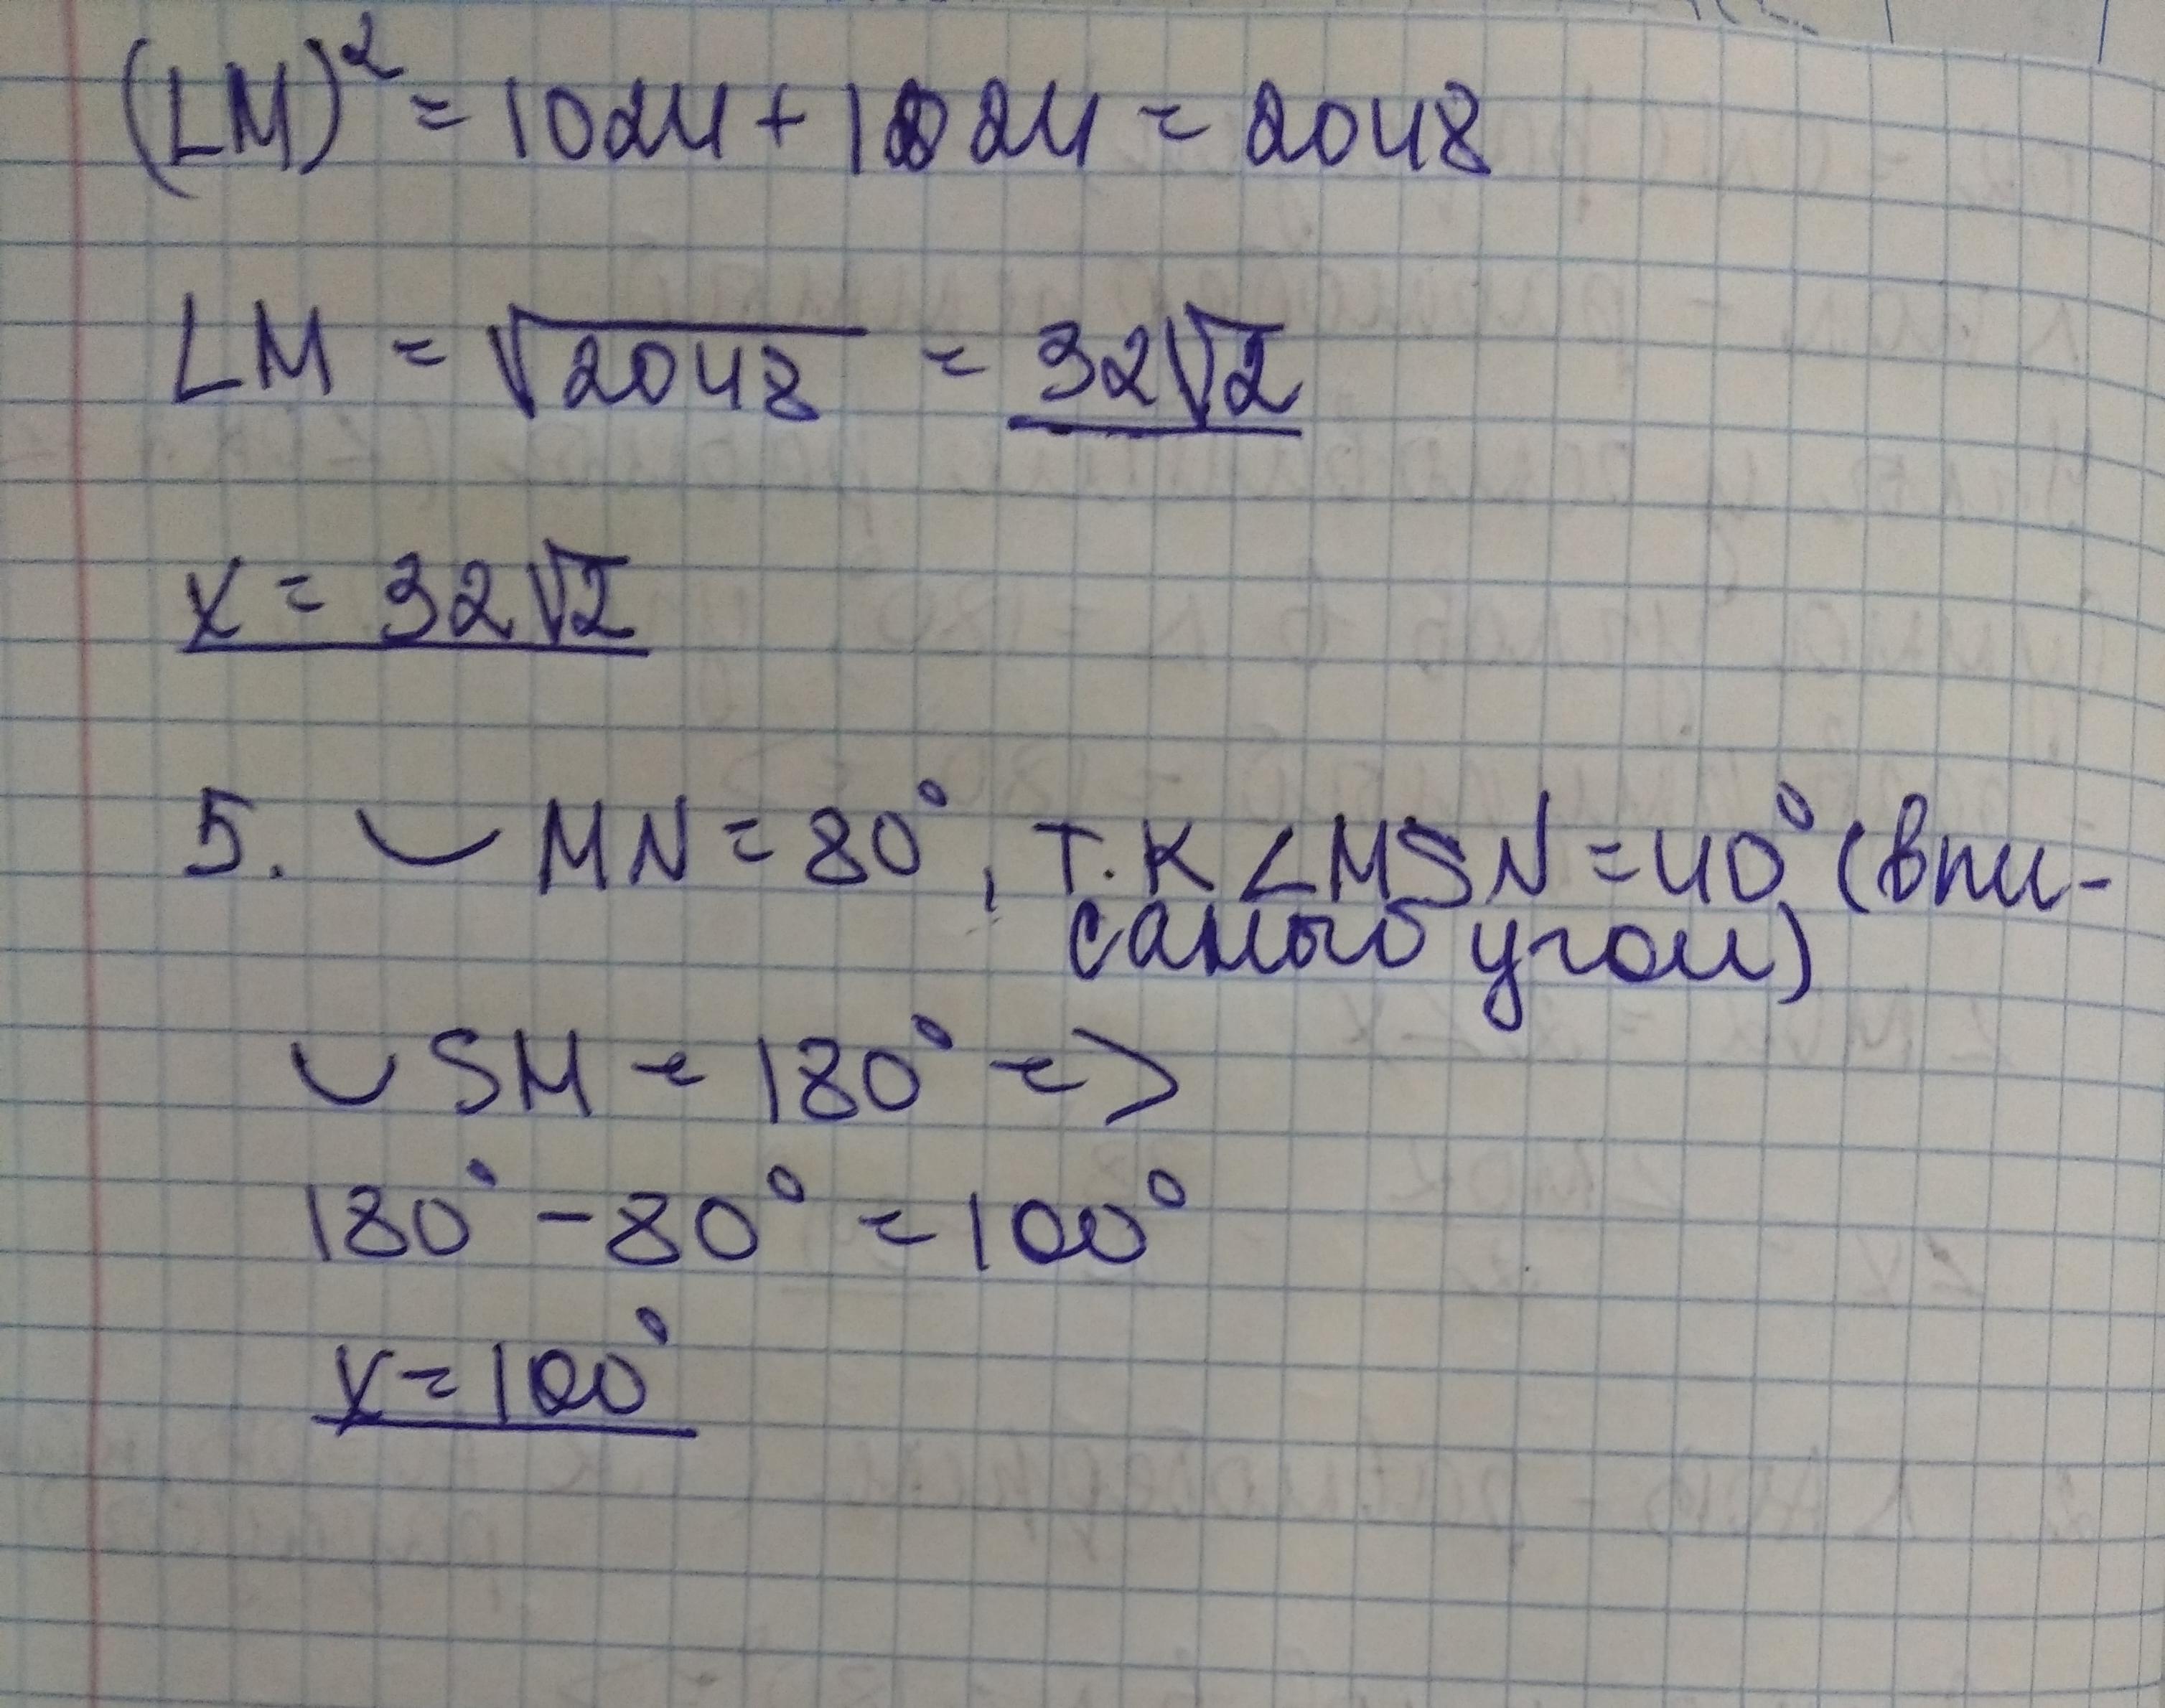 (LM)² = 1024 + 1024 = 2048
LM = √2048 = 32√2
x = 32√2
5. ◡ MN = 80°, т.к ∠MSN = 40° (впи-
саный угол)
◡ SM = 180° =>
180° - 80° = 100°
x = 100°